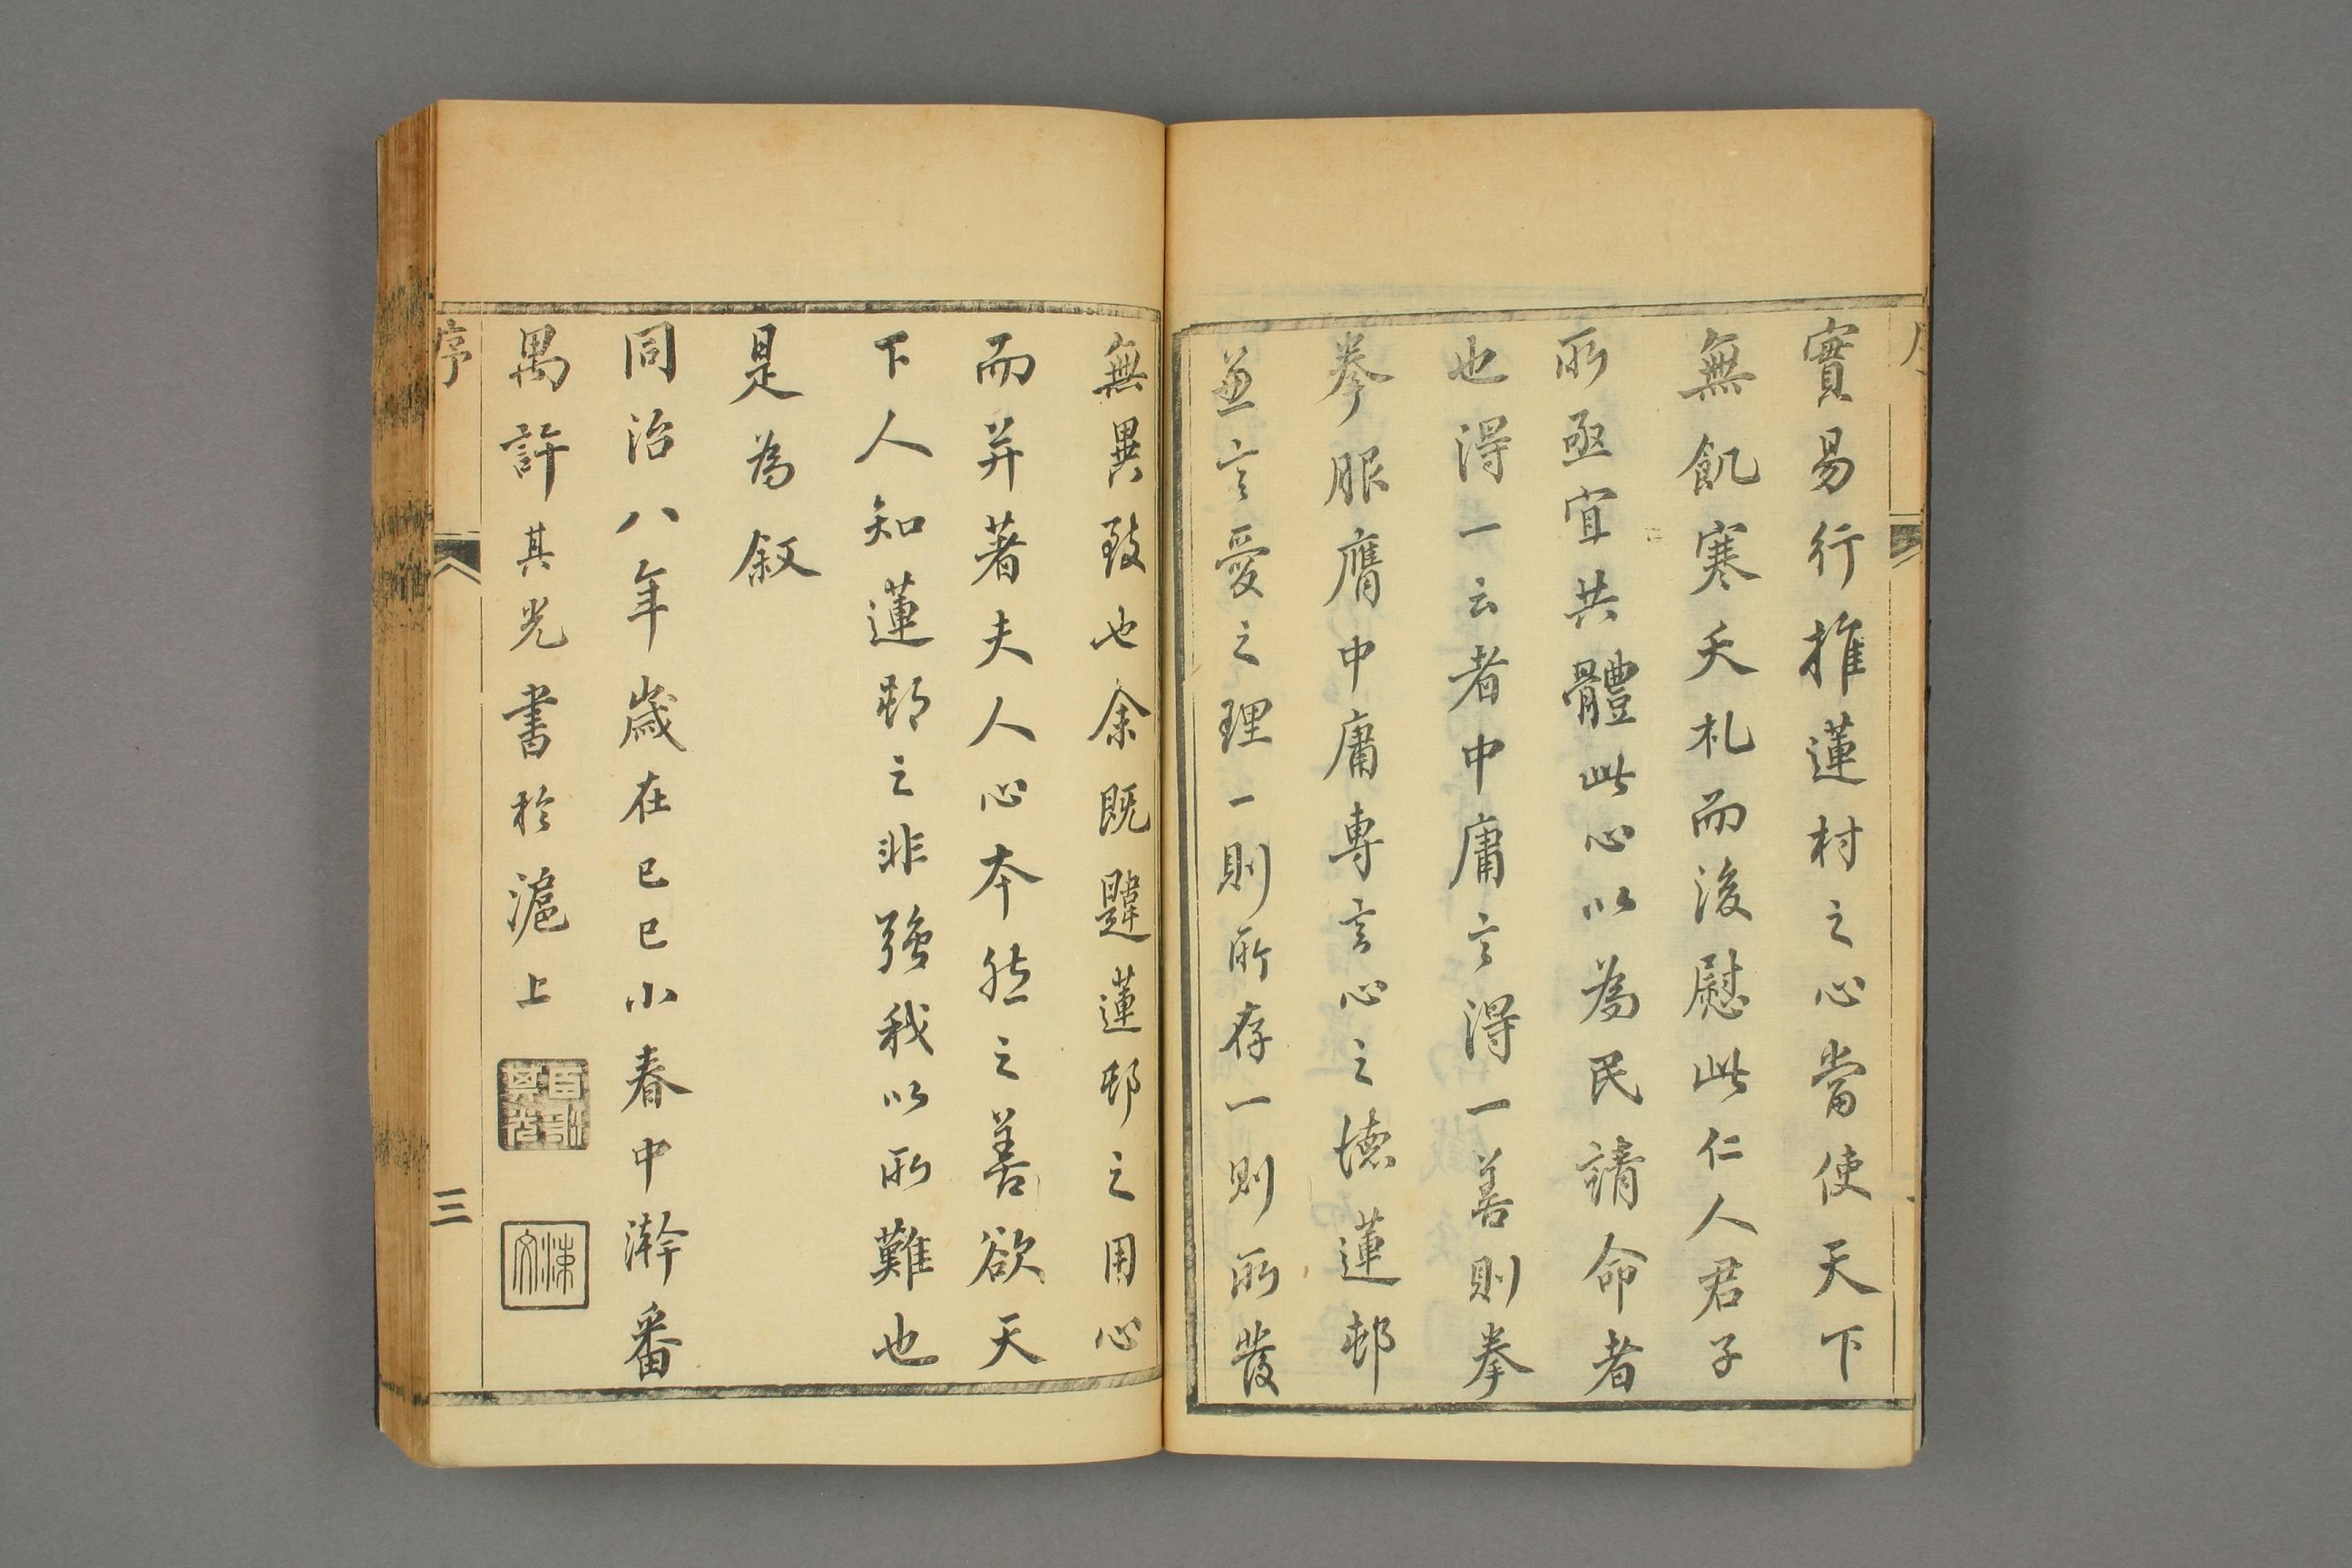 實易行推蓮村之心當使天下
無飢寒夭札而後慰此仁人君子
所亟宜共體此心以為民請命者
也得一云者中庸言得一善則拳
拳服膺中庸專言心之德蓮邨
兼言愛之理一則所存一則所發
無異致也余既韙蓮邨之用心
而并著夫人心本然之善欲天
下人知蓮邨之非強我以所難也
是為叙
同治八年歲在己巳小春中澣番
禺許其光書於滬上
序
三